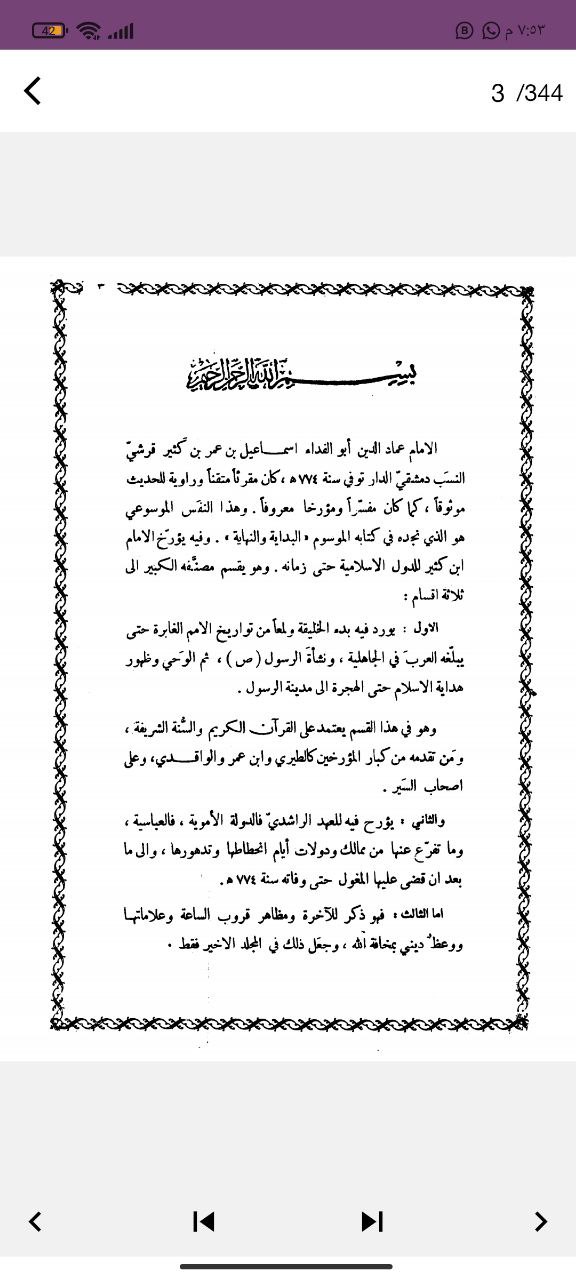 ٧:٥٣ م
42
3 /344
٣
بسم الله الرحمن الرحيم
الامام عماد الدين أبو الفداء اسمـاعيل بن عمر بن كثير قرشيّ
النسَب دمشقيّ الدار توفي سنة ٧٧٤ ه ، كان مقرئاً متقناً وراوية للحديث
موثوقاً ، كما كان مفسّراً ومؤرخا معروفاً . وهذا النفَس الموسوعي
هو الذي نجده في كتابه الموسوم « البداية والنهاية » . وفيه يؤرّخ الامام
ابن كثير للدول الاسلامية حتى زمانه . وهو يقسم مصنَّفه الكبير الى
ثلاثة اقسام :
الاول : يورد فيه بدء الخليقة ولمعاً من تواريخ الامم الغابرة حتى
يبلّغه العربَ في الجاهلية ، ونشأةَ الرسول ( ص ) ، ثم الوَحي وظهور
هداية الاسلام حتى الهجرة الى مدينة الرسول .
وهو في هذا القسم يعتمد على القرآن الكريم والسُّنة الشريفة ،
ومَن تقدمه من كبار المؤرخين كالطبري وابن عمر والواقـدي، وعلى
اصحاب السَير .
والثاني : يؤرح فيه للعهد الراشديّ فالدولة الأموية ، فالعباسية ،
وما تفرّع عنها من ممالك ودولات أيام انحطاطها وتدهورها ، والى ما
بعد ان قضى عليها المغول حتى وفاته سنة ٧٧٤ ه .
اما الثالث : فهو ذكر للآخرة ومظاهر قروب الساعة وعلاماتهـا
ووعظٌ ديني بمخافة الله ، وجعَل ذلك في المجلد الاخير فقط .